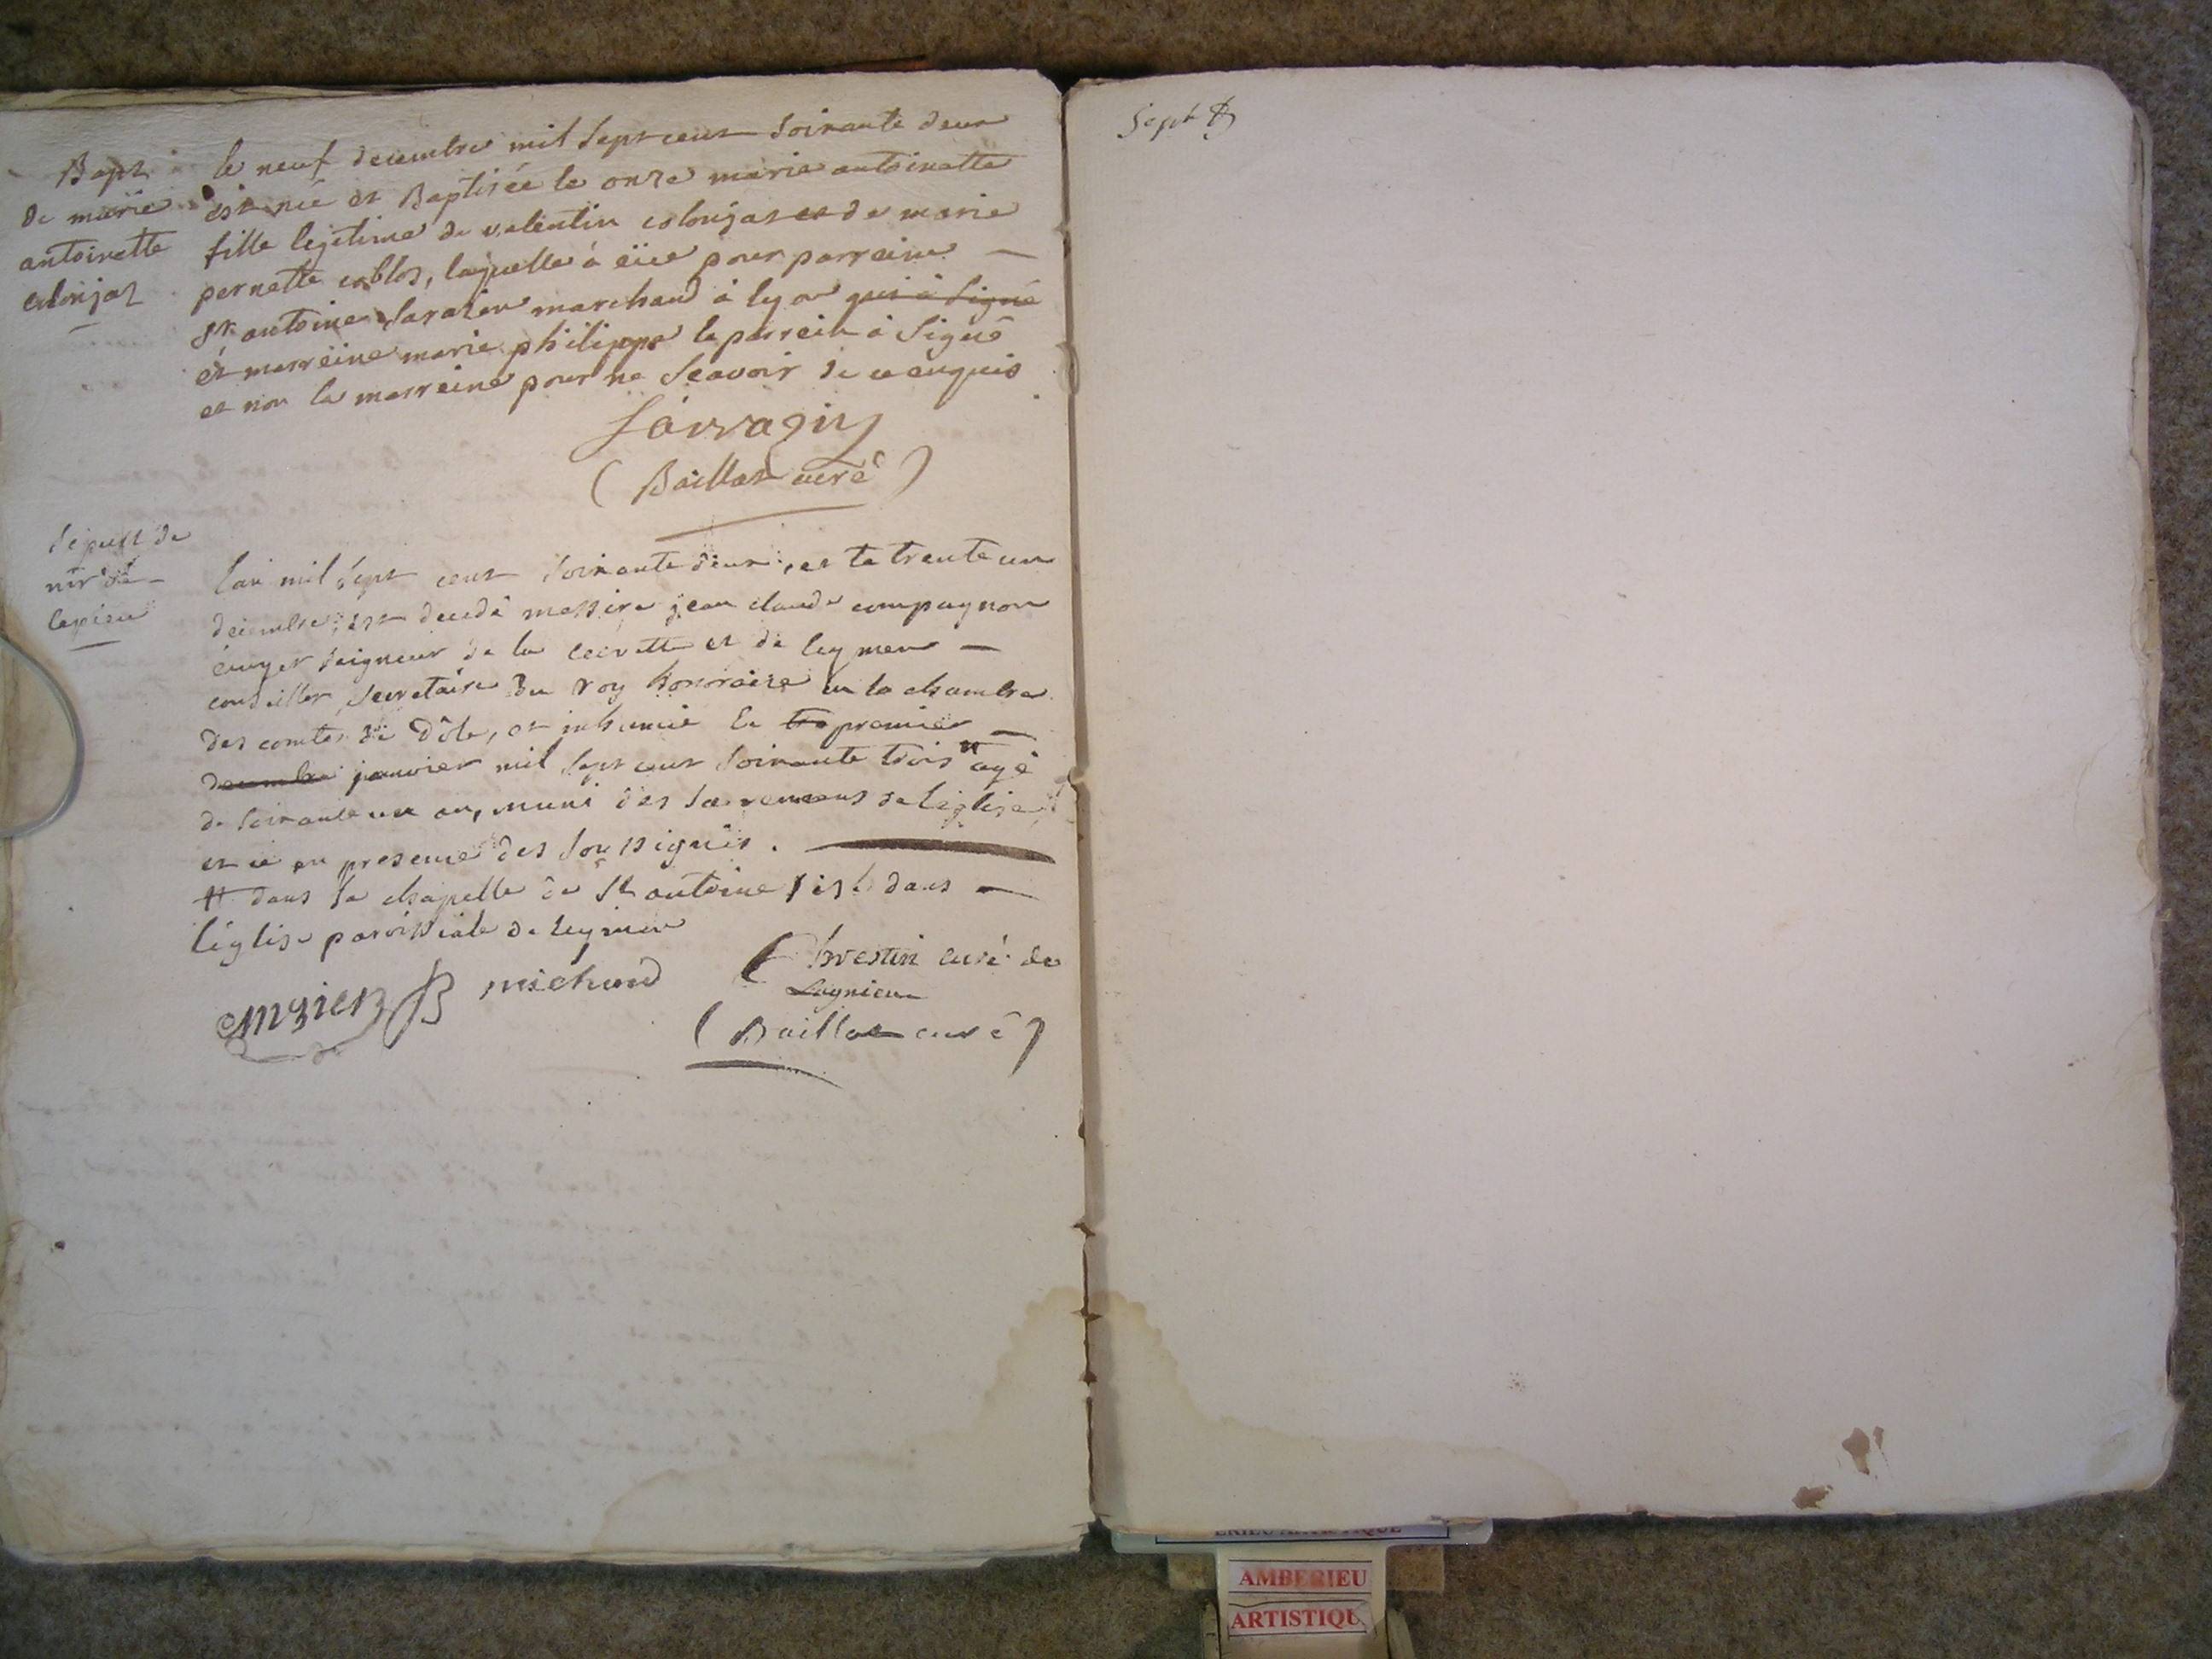 Bapt.
de marie
antoinette
colonjat
le neuf decembre mil sept cent soixante deux
est née et Baptisée le onze marie antoinette
fille legitime de valentin colonjat et de marie
pernette coblos, laquelle à eüe pour parrein
Sr antoine Sarazin marchand à lyon qui à signé
et marreine marie philippe le parrein à signé
et non la marreine pour ne sçavoir de ce enquis
Sarrazin
(Baillat curé)
sepult de
mr de
lapieu
l'an mil sept cent soixante deux, et le trente un
decembre, est decedé messire jean claude compagnon
écuyer seigneur de la et de leymen
conseiller secretaire du roy honoraire en la chambre
des comtes de Dôle, et inhumé le premier
decembre janvier mil sept cent soixante trois # agé
de soixante un an, muni des sacremens de l'église
et ce en presence des soussignés.
# dans la chapelle de St antoine dans
l'église paroissiale de leymen
michaud
curé de
Lagnieu
(Baillat curé)
Sept
AMBERIEU
ARTISTIQU